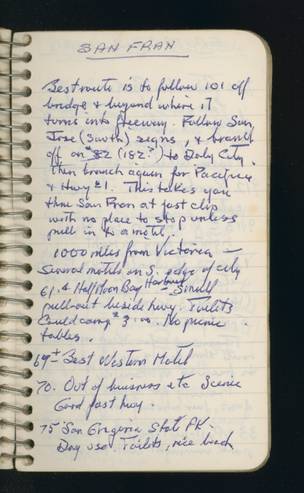 SAN FRAN
Best route is to follow 101 off
bridge & beyond where it
turns into freeway. Follow San
Jose (South) signs, & branch
off on #82 (182?) to Daly City.
Then branch again for Pacifica
& Hwy #1. This takes you
thru San Fran at fast clip
with no place to stop unless
pull in to a motel.
1000 miles from Victoria –
Several motels on S. edge of city
61.4 Half Moon Bay Harbour – Small
pull-out beside hwy. Toilets
Could camp. No picnic
tables.
69± Best Western Motel
70. Out of business etc Scenic
Good fast hwy.
75 San Gregorio State PK.
Day use, Toilets, nice beach